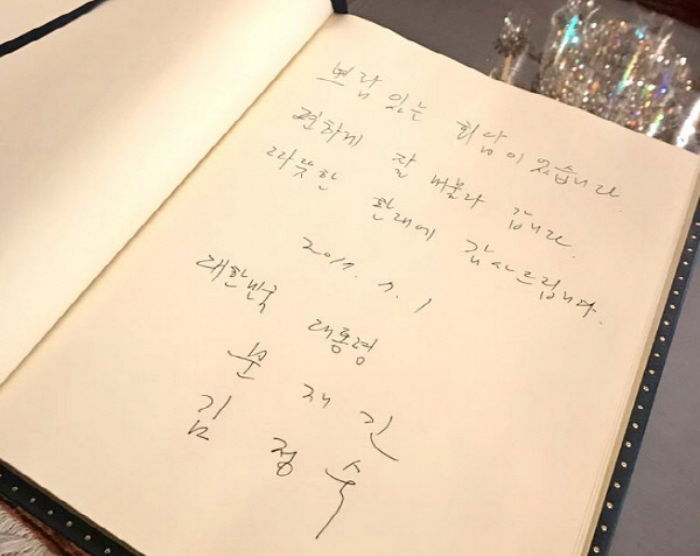 보람 있는 회담이었습니다.
편하게 잘 머물다 갑니다.
따뜻한 환대에 감사드립니다.
2017. 7. 1
대한민국 대통령
문 재 인
김 정 숙